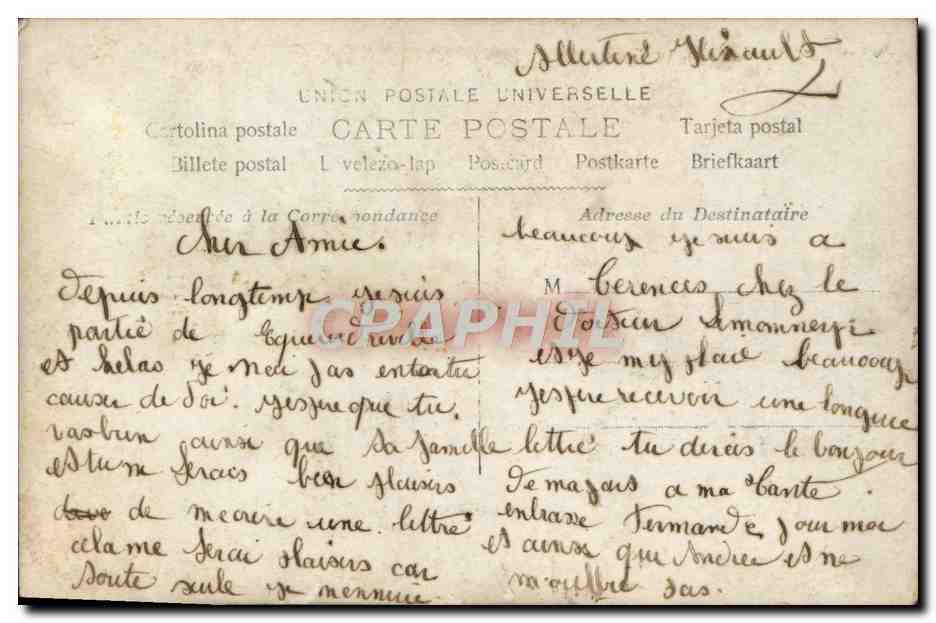 Albertine Hénault
UNION POSTALE UNIVERSELLE
Cartolina postale CARTE POSTALE Tarjeta postal
Billete postal Levelezo-lap Postcard Postkarte Briefkaart
réservée à la Correspondance
Cher Amie.
Depuis longtemp je suis
partie de
et helas je nai pas entendu
causer de toi. jespère que tu
vas bien ainsi que ta famille
et tu me ferais bien plaisirs
de mecrire une lettre
cela me ferai plaisirs car
toute seule je mennuie
Adresse du Destinataire
beaucoup je suis a
M Cerences chez le
docteur
et je my plait beaucoup
jespere recevoir une longue
lettre tu dirais le bonjour
de ma part a ma tante.
embrasse Fernande pour moi
et ainsi que Andree et ne
m'oublie pas.
CPAPHIL